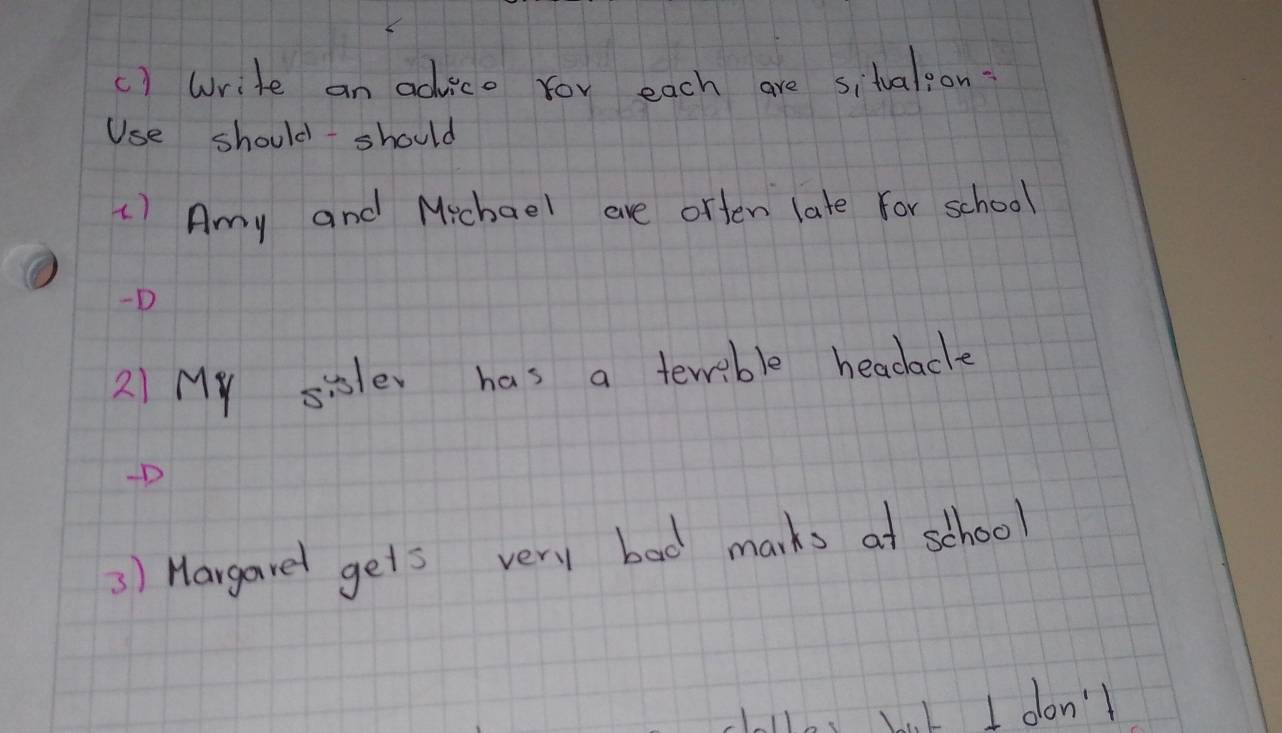 c) Write an advice for each are situation:
Use should - should
1) Amy and Michael are often late for school
2) My sister has a terrible headache
3) Margaret gets very bad marks at school
but I don't